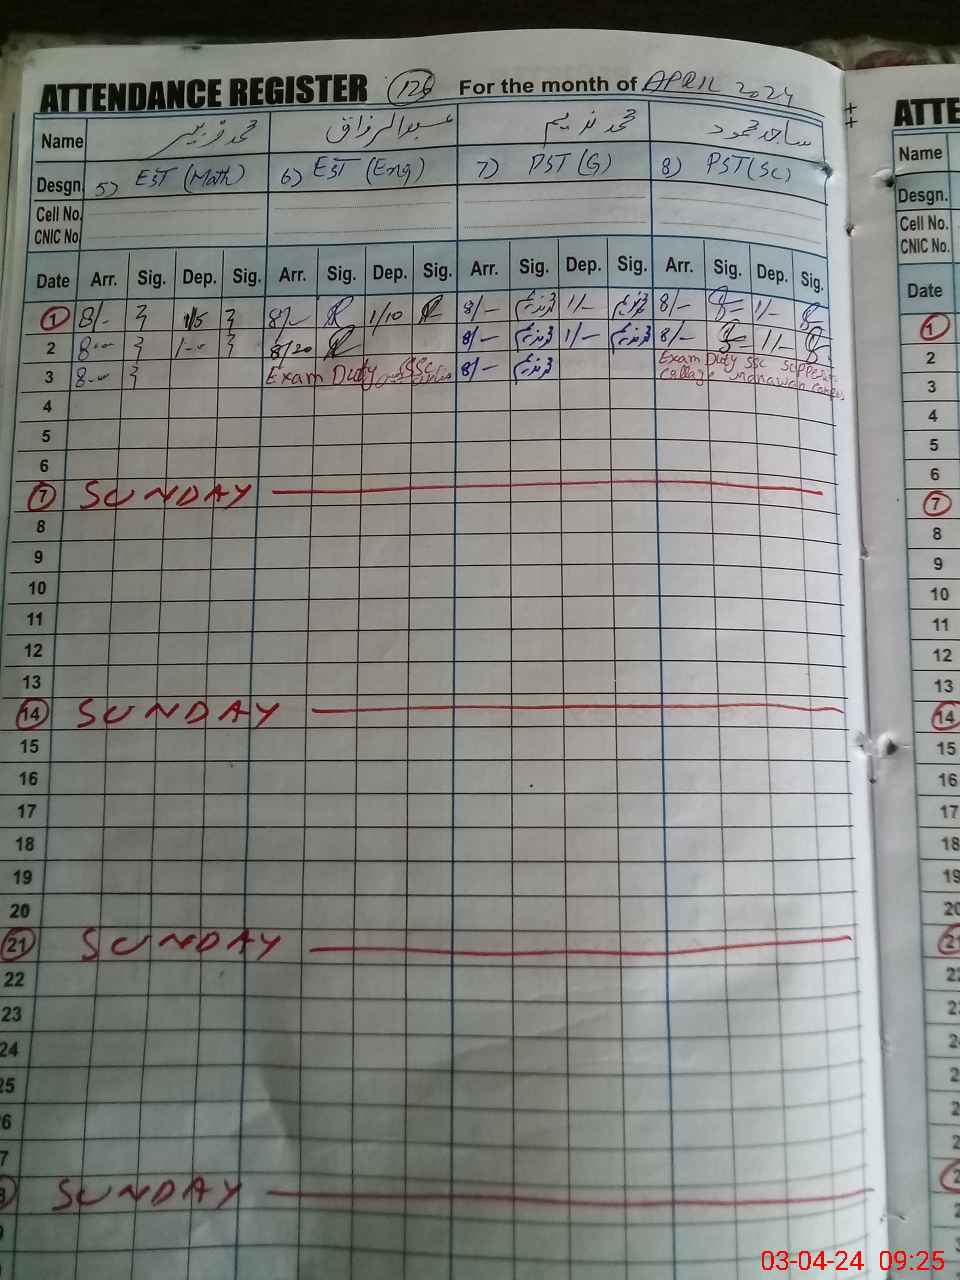 ATTENDANCE REGISTER 126 For the month of APRIL 2024
Name محمد زبیر عبدالرزاق محمد ندیم ساجد محمود
Desgn. 5) EST (Math) 6) EST (Eng) 7) PST (G) 8) PST (SC)
Cell No.
CNIC No.
Date Arr. Sig. Dep. Sig. Arr. Sig. Dep. Sig. Arr. Sig. Dep. Sig. Arr. Sig. Dep. Sig.
1 8/- 1/5 8/- 1/10 8/- 1/- 8/- 1/-
2 8-00 1-00 8/20 8/- 1/- 8/- 1/-
3 8-00 Exam Duty SSC 8/- Exam Duty SSC
collage manawan
4
5
6
7 SUNDAY
8
9
10
11
12
13
14 SUNDAY
15
16
17
18
19
20
21 SUNDAY
22
23
24
25
SUNDAY
ATTE
Name
Desgn.
Cell No.
CNIC No.
Date
1
2
3
4
5
6
7
8
9
10
11
12
13
14
15
16
17
18
19
20
21
03-04-24 09:25